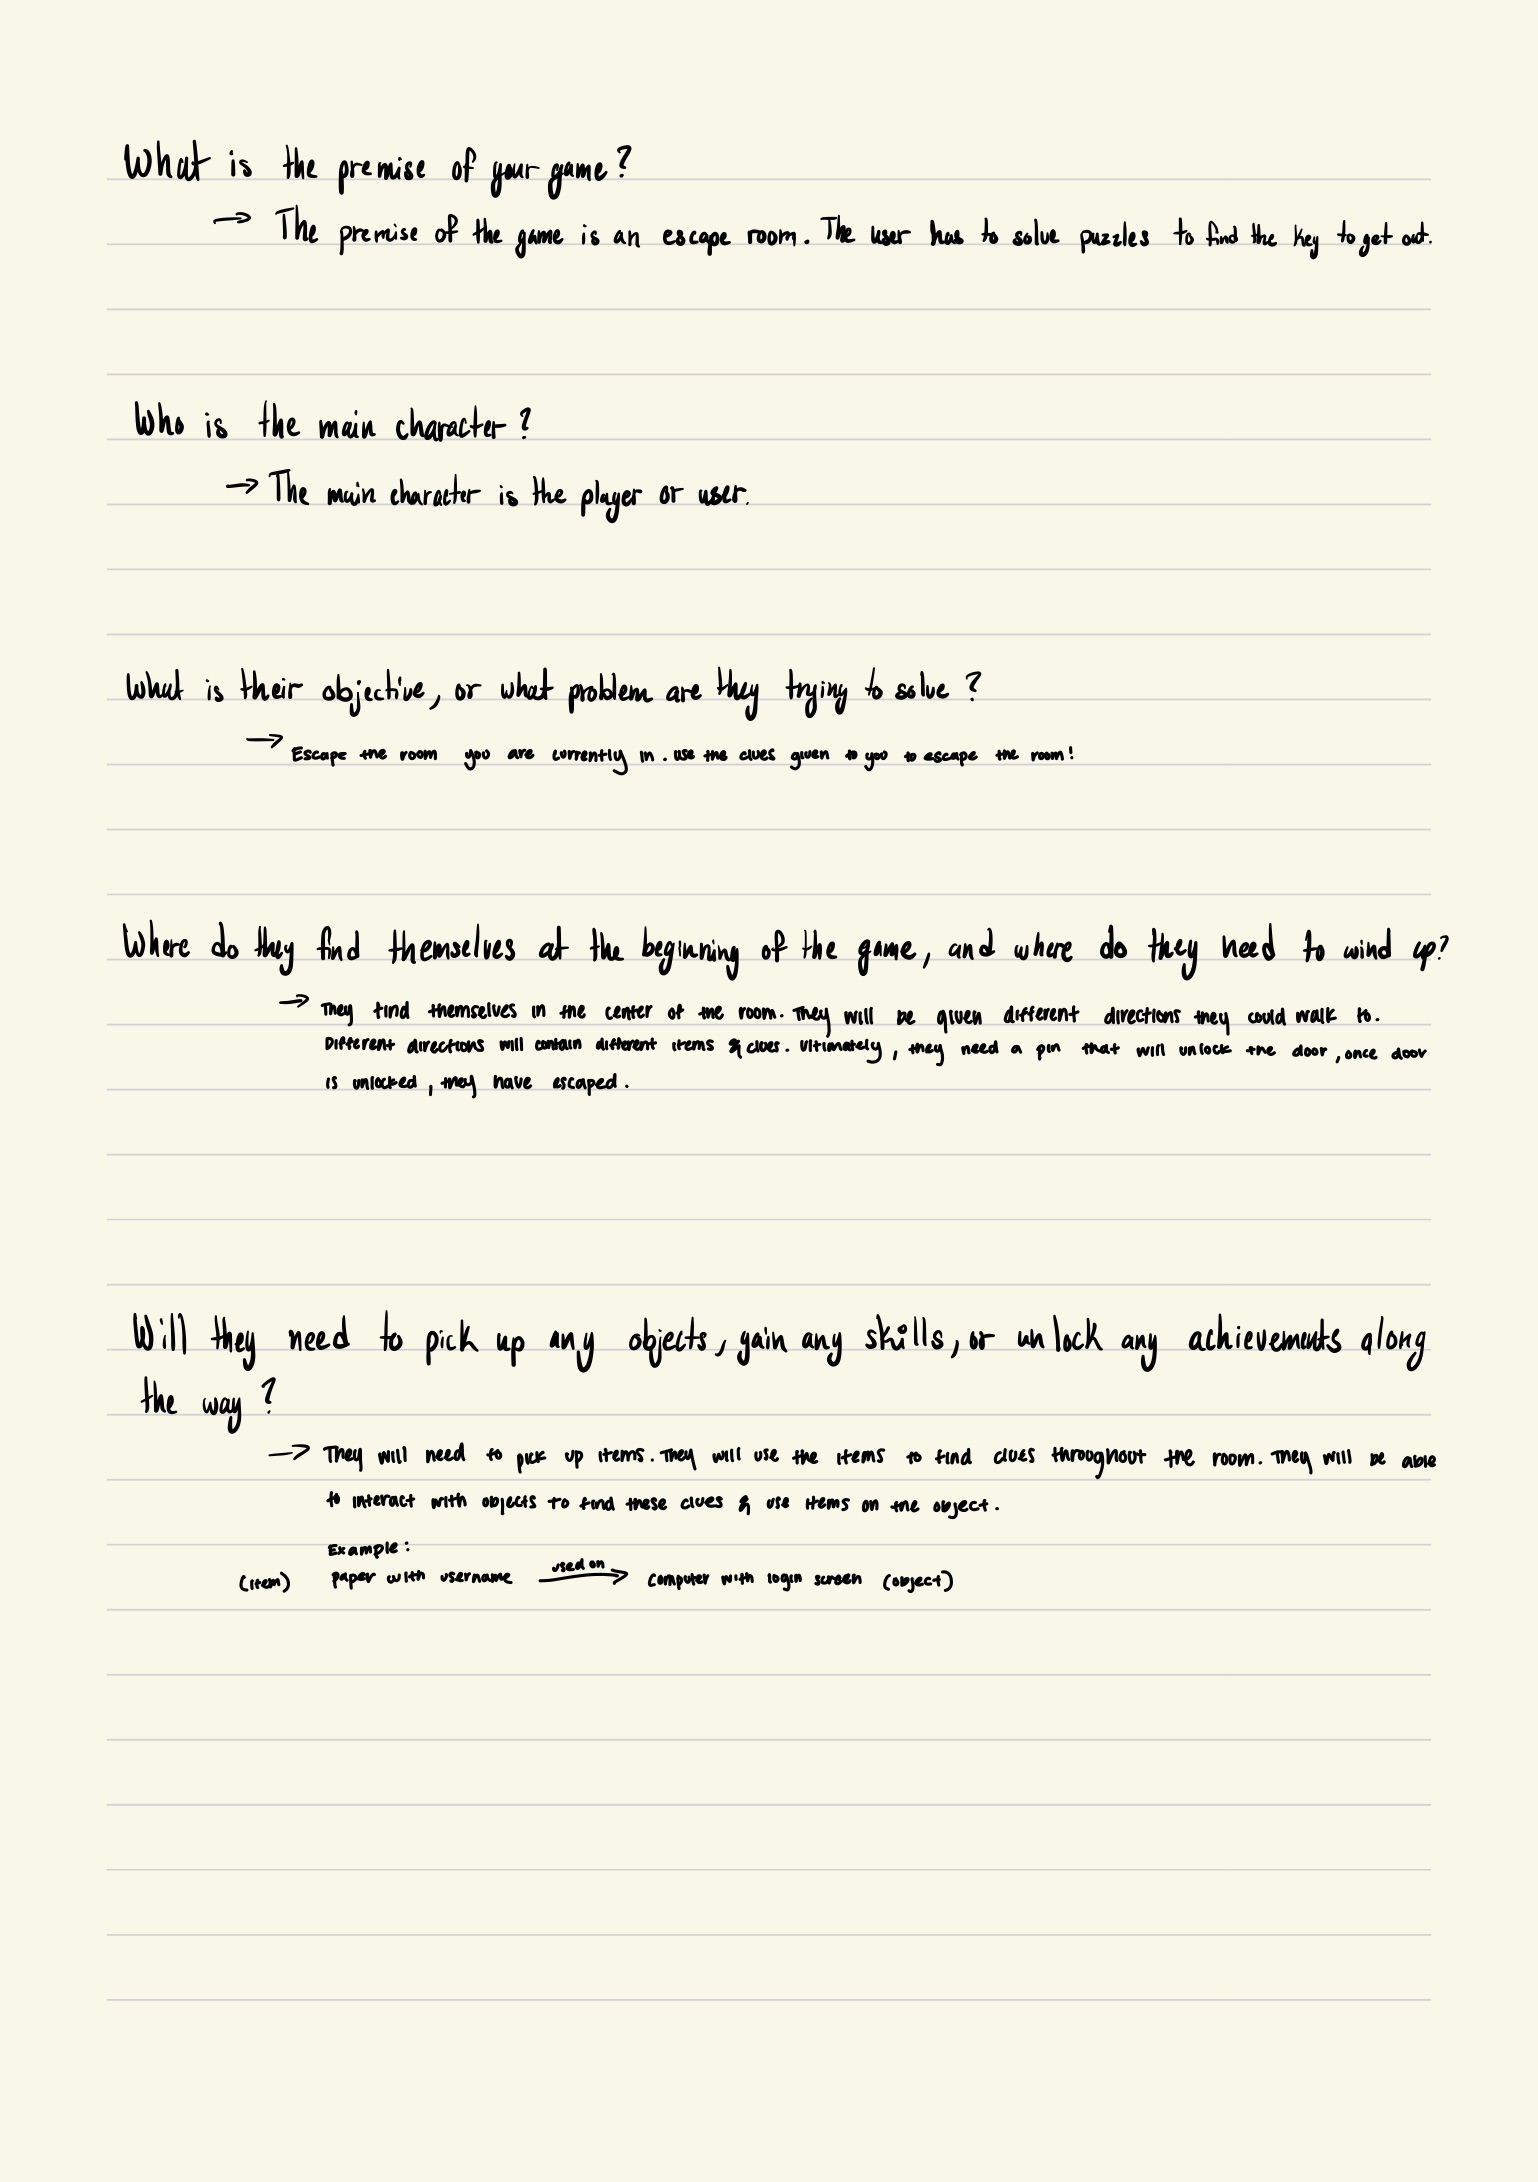 What is the premise of your game?
→ The premise of the game is an escape room. The user has to solve puzzles to find the key to get out.
Who is the main character?
→ The main character is the player or user.
What is their objective, or what problem are they trying to solve?
→ Escape the room you are currently in. use the clues given to you to escape the room!
Where do they find themselves at the beginning of the game, and where do they need to wind up?
→ They find themselves in the center of the room. They will be given different directions they could walk to.
Different directions will contain different items & clues. Ultimately, they need a pin that will unlock the door, once door
is unlocked, they have escaped.
Will they need to pick up any objects, gain any skills, or unlock any achievements along
the way?
→ They will need to pick up items. They will use the items to find clues throughout the room. They will be able
to interact with objects to find these clues & use items on the object.
Example:
(item) paper with username used on → computer with login screen (object)